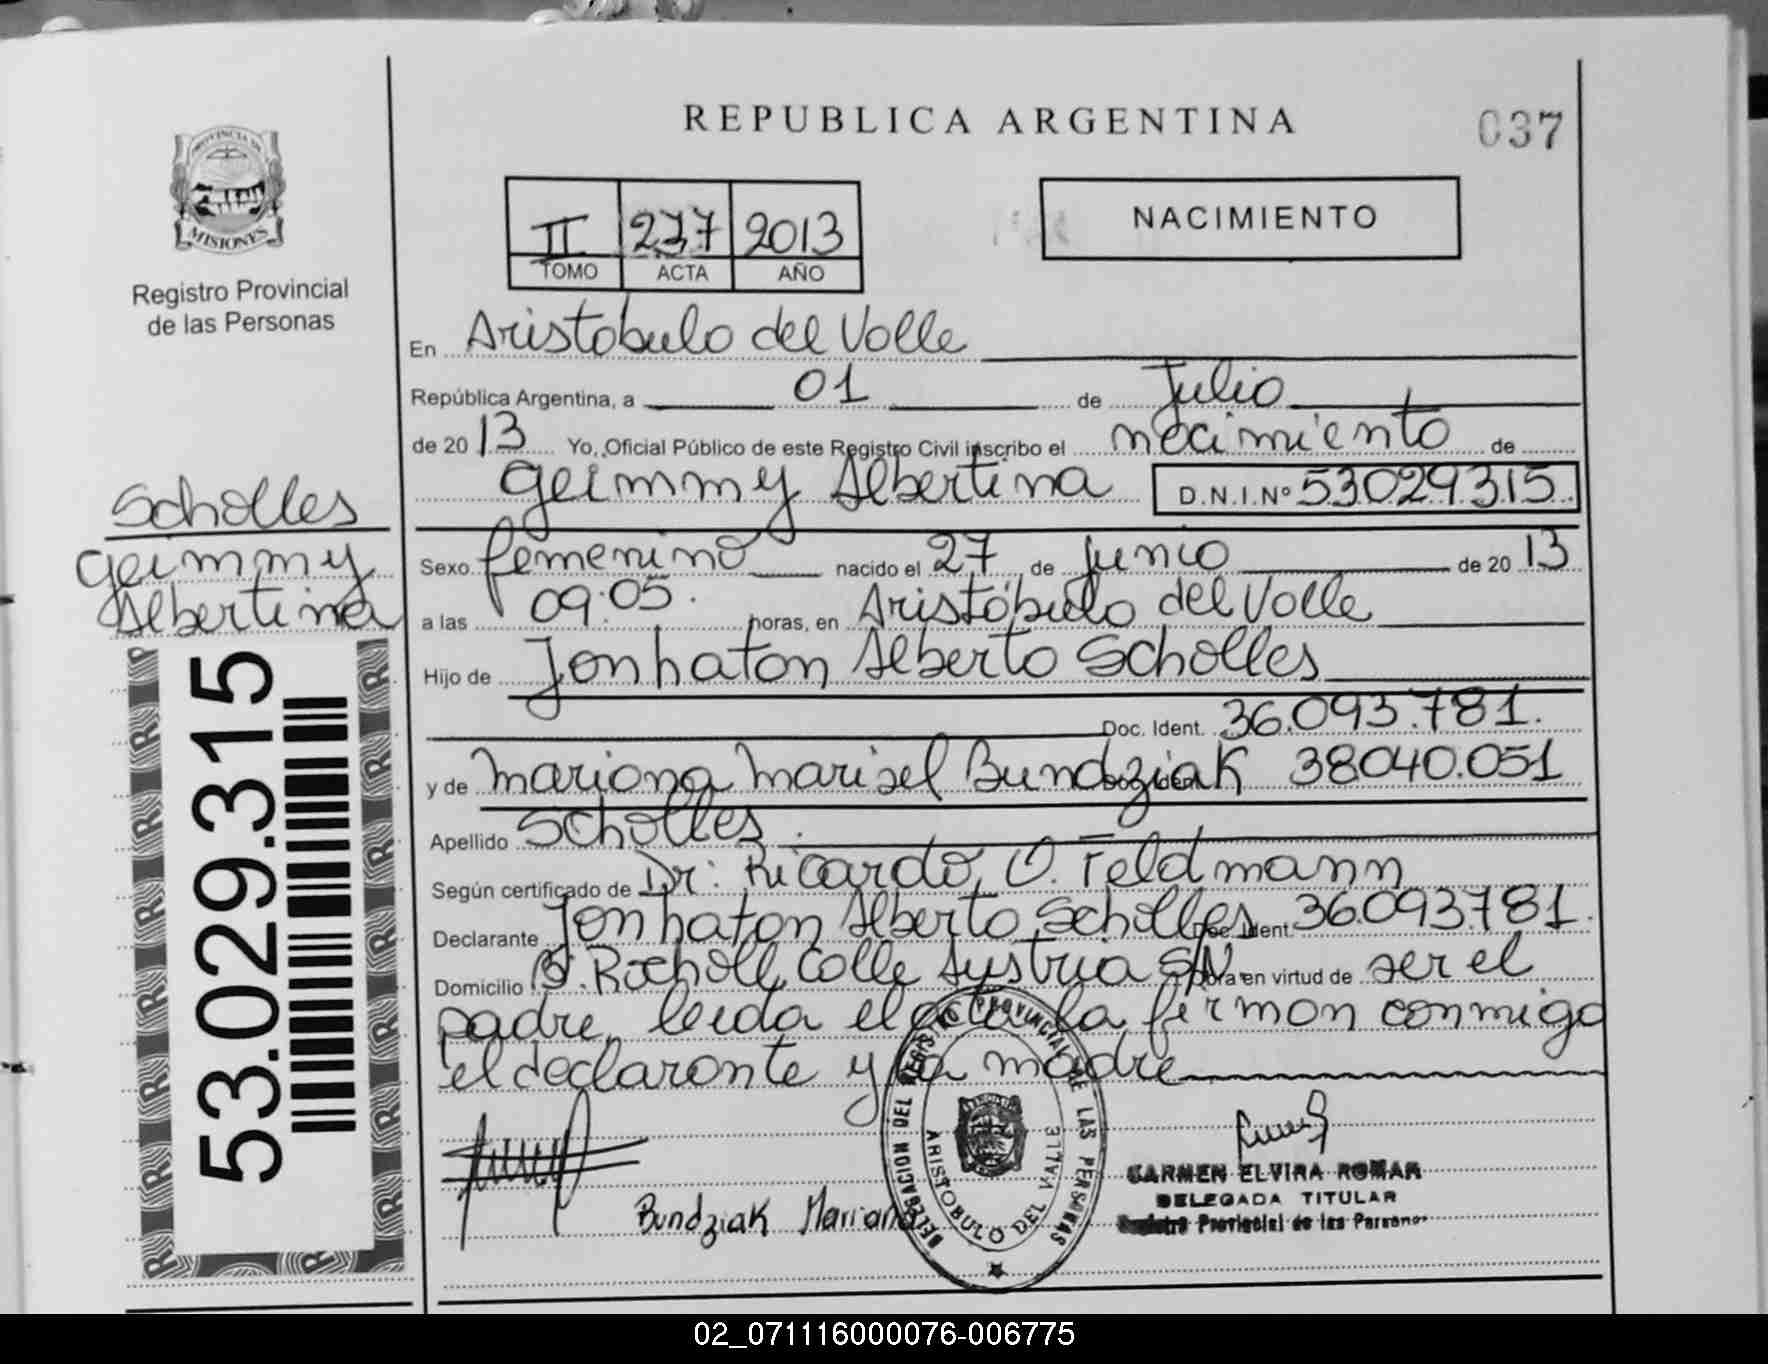 REPUBLICA ARGENTINA
037
PROVINCIA DE
MISIONES
Registro Provincial
de las Personas
II 237 2013
TOMO ACTA AÑO
NACIMIENTO
En Aristobulo del Valle
República Argentina, a 01 de Julio
de 2013 Yo, Oficial Público de este Registro Civil inscribo el nacimiento de
geimmy Albertina D.N.I.Nº 53029315
Scholles
geimmy
Albertina
53.029.315
Sexo femenino nacido el 27 de Junio de 2013
a las 09:05. horas, en Aristóbulo del Valle
Hijo de Jonhatan Alberto Scholles
Doc. Ident. 36.093.781.
y de Mariana Marisel Bundziak 38040.051
Apellido Scholles.
Según certificado de Dr: Ricardo O. Feldmann
Declarante Jonhatan Alberto Scholles Doc. Ident. 36.093781.
Domicilio B. Rocholl, Calle Austria S/N obra en virtud de ser el
padre, leida el acta la firman conmigo
el declarante y la madre
Bundziak Mariana
DELEGACION DEL REGISTRO PROVINCIAL DE LAS PERSONAS
ARISTOBULO DEL VALLE
CARMEN ELVIRA ROMAR
DELEGADA TITULAR
Registro Provincial de las Personas
02_071116000076-006775